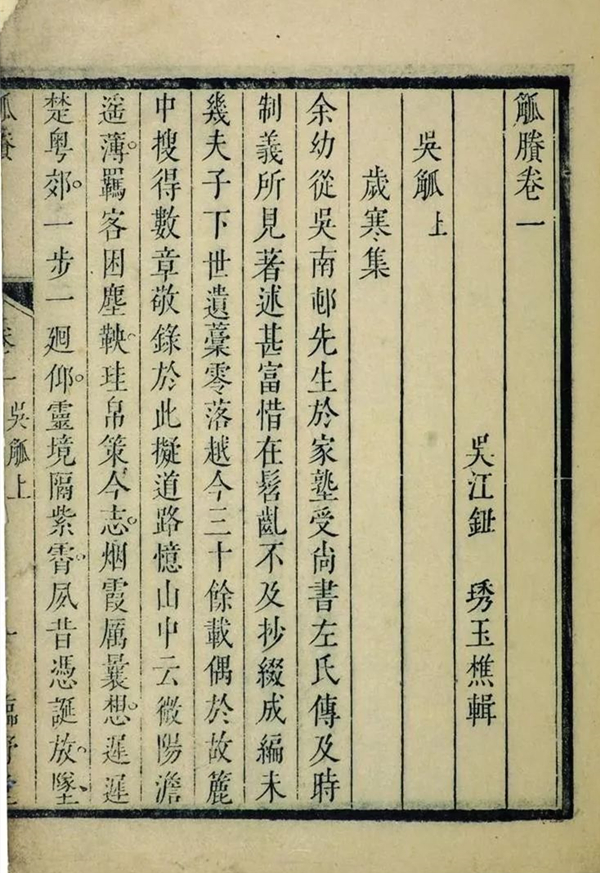 觚賸卷一
吳江鈕　琇玉樵輯
吳觚上
歲寒集
余幼從吳南邨先生於家塾受尚書左氏傳及時
制義所見著述甚富惜在髫齔不及抄綴成編未
幾夫子下世遺藁零落越今三十餘載偶於故簏
中搜得數章敬錄於此擬道路憶山中云微陽澹
遥薄。羈客困塵鞅。珪帛策今志。烟霞厲曩想。遲遲
楚粵郊。一步一廻仰。靈境隔紫霄。夙昔憑誕放。墜
觚賸　卷一　吳觚上　一　臨野堂